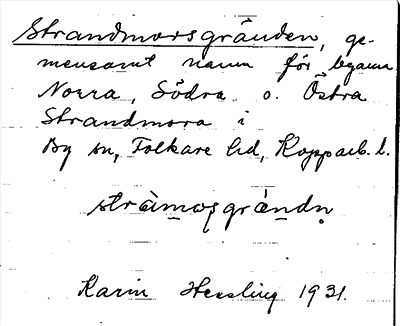 Strandmorsgränden, ge-
mensamt namn för byarna
Norra, Södra o. Östra
Strandmora i
By sn, Folkare hd, Kopparb. l.
Karin Hessling 1931.